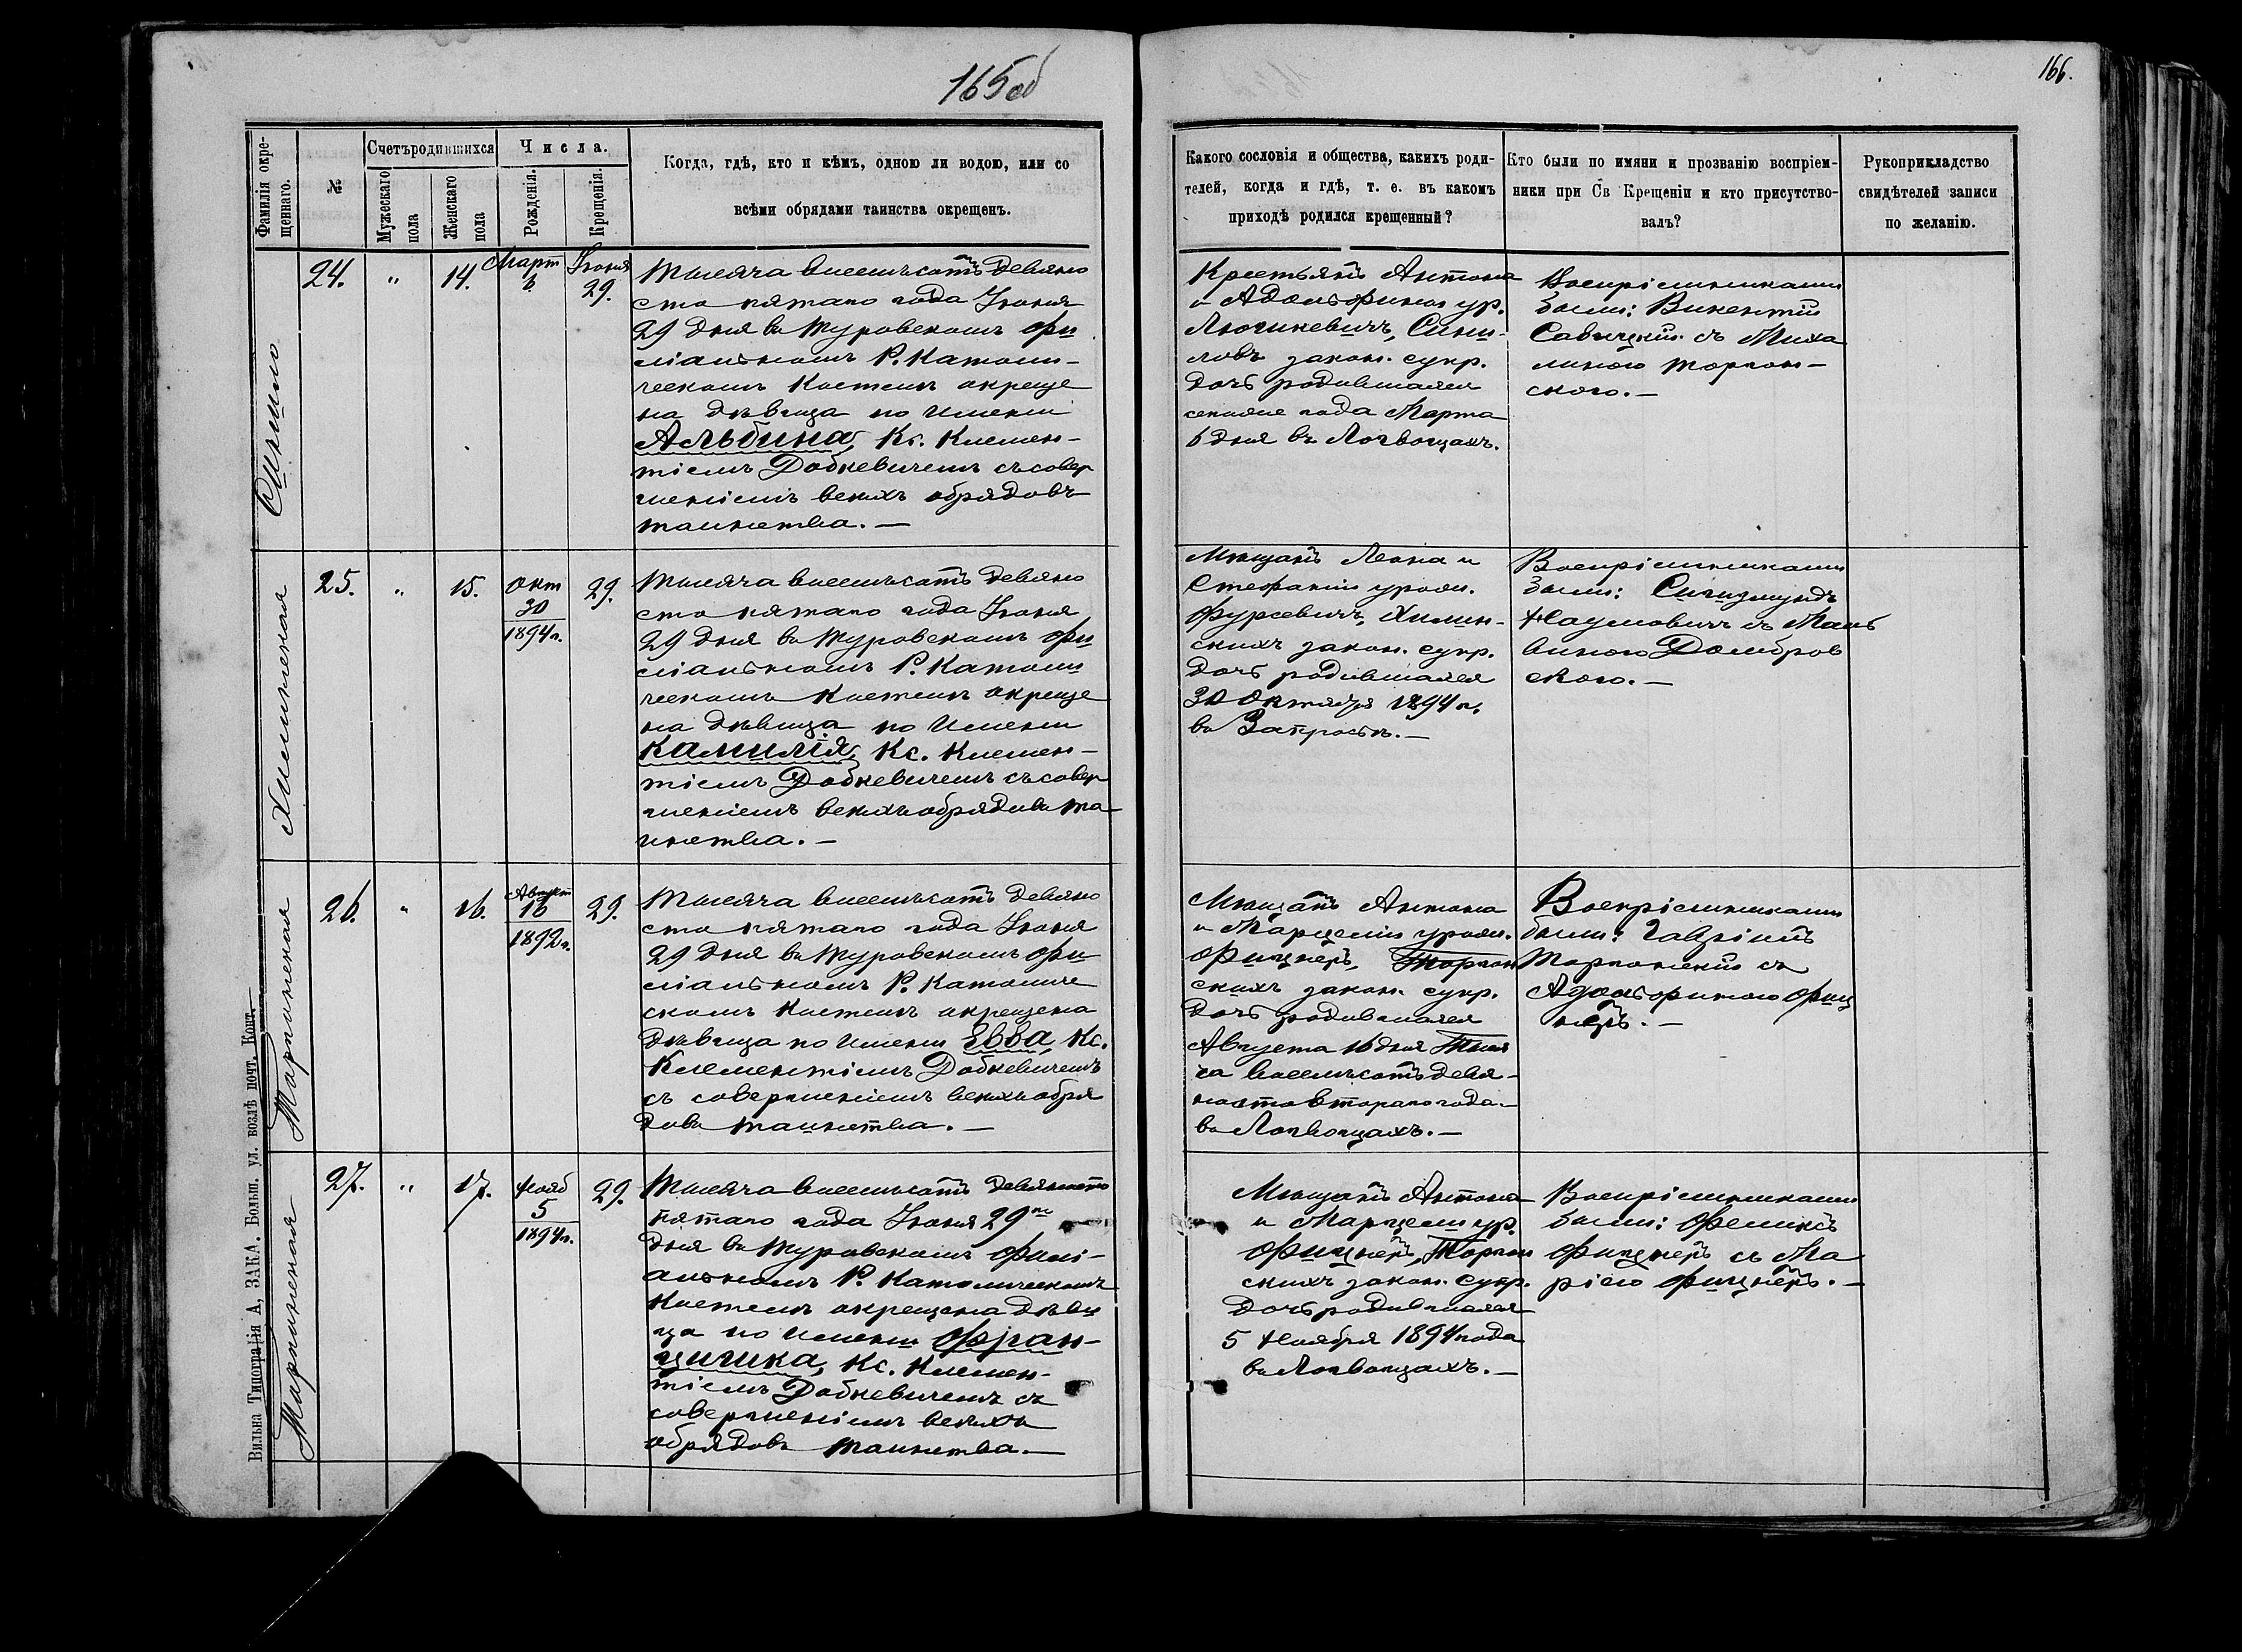 165 об
166.
Фамилія окре-
щеннаго.
№
Счетъ родившихся
Мужескаго
пола
Женскаго
пола
Числа.
Рожденія.
Крещенія.
Когда, гдѣ, кто и кѣмъ, одною ли водою, или со
всѣми обрядами таинства окрещенъ.
Какого сословія и общества, какихъ роди-
телей, когда и гдѣ, т. е. въ какомъ
приходѣ родился крещенный?
Кто были по имяни и прозванію воспріем-
ники при Св Крещеніи и кто присутство-
валъ?
Рукоприкладство
свидѣтелей записи
по желанію.
Синило
24.
"
14.
Март
6
Іюня
29.
Тысяча восемьсотъ девяно
сто пятаго года Іюня
29 дня въ Туровскомъ фи
ліальномъ Р. Католи-
ческомъ костелѣ окреще
на дѣвица по имени
Альбина, Кс. Климен-
тіемъ Добкевичемъ съ совер
шеніемъ всѣхъ обрядовъ
таинства. —
Крестьянъ Антона
и Адольфины ур.
Лючикевичъ, Сини-
ловъ закон. супр.
дочь родившаяся
сего года Марта
6 дня въ Логвощахъ.
Воспріемниками
были: Викентій
Савицкій съ Миха
линою Торгон-
скою. —
Химинская
25.
"
15.
Окт
30
1894 г.
29.
Тысяча восемьсотъ девяно
сто пятаго года Іюня
29 дня въ Туровскомъ фи
ліальномъ Р. Католи
ческомъ костелѣ окреще
на дѣвица по имени
Камилія, Кс. Климен-
тіемъ Добкевичемъ съ совер
шеніемъ всѣхъ обрядовъ та
инства. —
Мѣщанъ Леона и
Стефаніи урожд.
Фурсевичъ, Химин-
скихъ закон. супр.
дочь родившаяся
30 Октября 1894 г.
въ Запросьѣ. —
Воспріемниками
были: Сигизмундъ
Наумовичъ съ Маль
виною Домбров
скою. —
Торгонская
26.
"
16.
Август
16
1892 г.
29.
Тысяча восемьсотъ девяно
сто пятаго года Іюня
29 дня въ Туровскомъ фи
ліальномъ Р. Католиче
скомъ костелѣ окрещена
дѣвица по имени Евва, Кс.
Климентіемъ Добкевичемъ
съ совершеніемъ всѣхъ обря
довъ таинства. —
Мѣщанъ Антона
и Марцели урожд.
Фицнеръ, Торгон
скихъ закон. супр.
дочь родившаяся
Августа 16 дня Тыся
ча восемьсотъ девя-
носто втораго года —
въ Логвощахъ. —
Воспріемниками
были: Гавріилъ
Торгонскій съ
Адольфиною Фиц
неръ. —
Торгонская
27.
"
17.
Нояб
5
1894 г.
29.
Тысяча восемьсотъ девяносто
пятаго года Іюня 29го
дня въ Туровскомъ филі-
альномъ Р. Католическомъ
костелѣ окрещена дѣви
ца по имени Фран-
цишка, Кс. Климен-
тіемъ Добкевичемъ съ
совершеніемъ всѣхъ
обрядовъ таинства. —
Мѣщанъ Антона
и Марцели ур.
Фицнеръ, Торгон
скихъ закон. супр.
дочь родившаяся
5 Ноября 1894 года
въ Логвощахъ. —
Воспріемниками
были: Феликсъ
Фицнеръ съ Ма
ріею Фицнеръ. —
Вильна Типографія А, ЗАКА. Больш. ул. возлѣ почт. Конт.